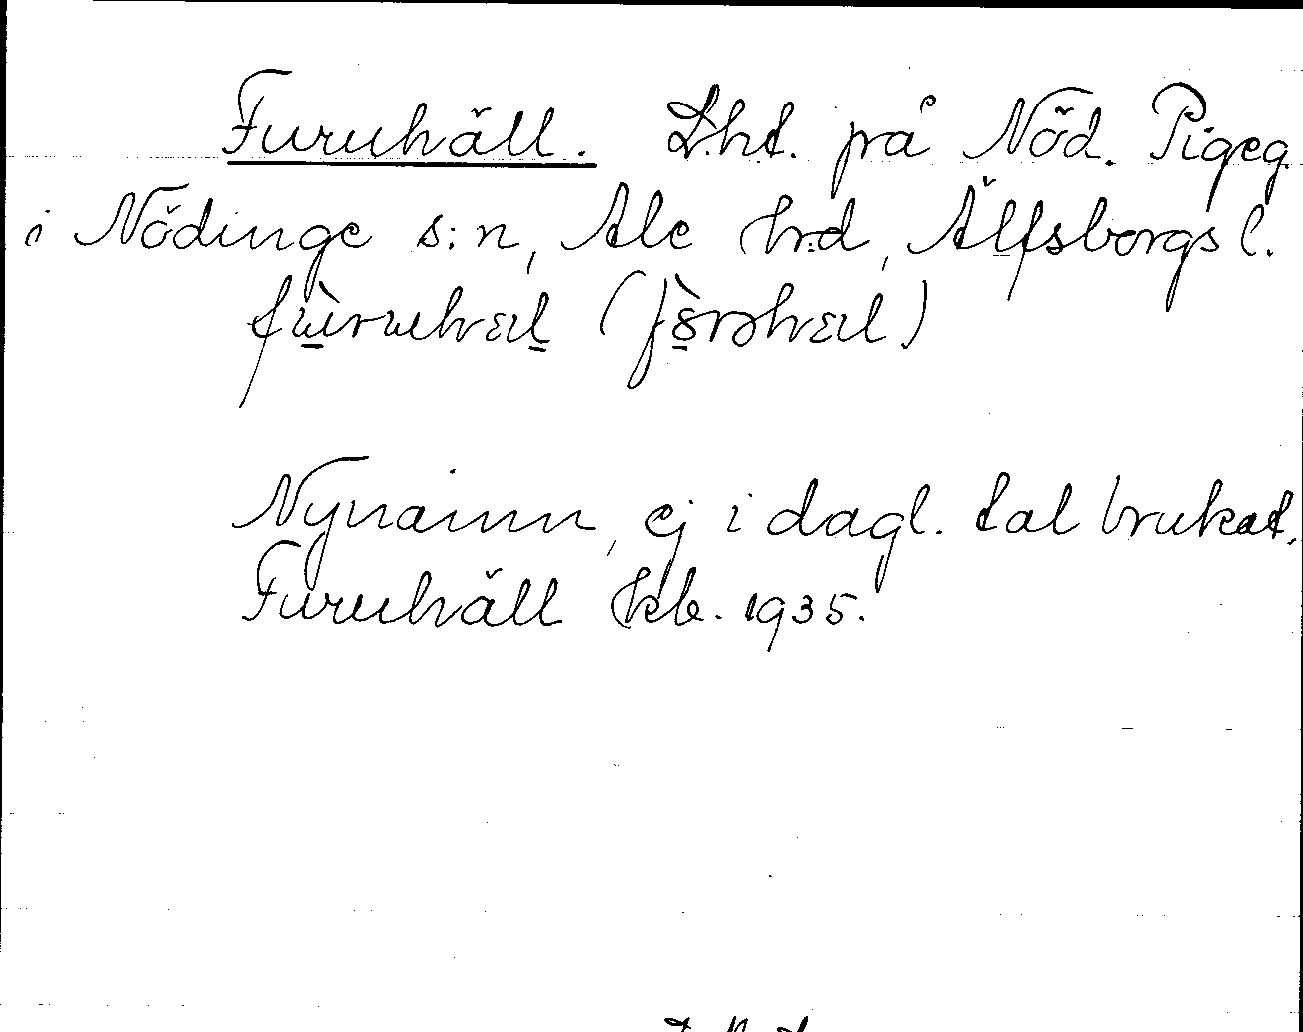 Furuhäll. Lht. på Nöd. Pigeg.
i Nödinge s:n, Ale hrd, Älfsborgs l.
Nynamn, ej i dagl. tal brukat.
Furuhäll kb. 1935.